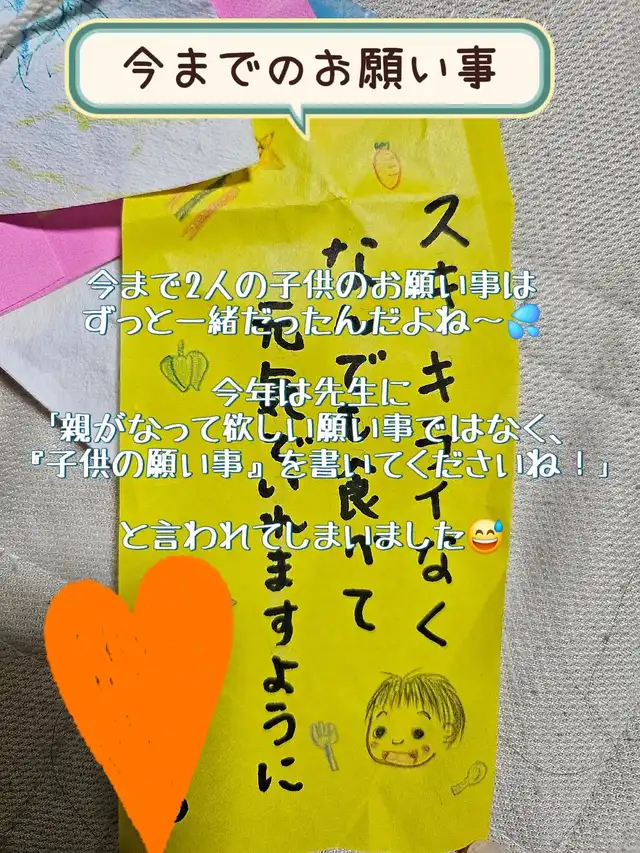 今までのお願い事
今まで2人の子供のお願い事は
ずっと一緒だったんだよね〜💦
今年は先生に
「親がなって欲しい願い事ではなく、
『子供の願い事』を書いてくださいね！」
と言われてしまいました😅
スキキライなく
なんでも食べて
元気でいれますように